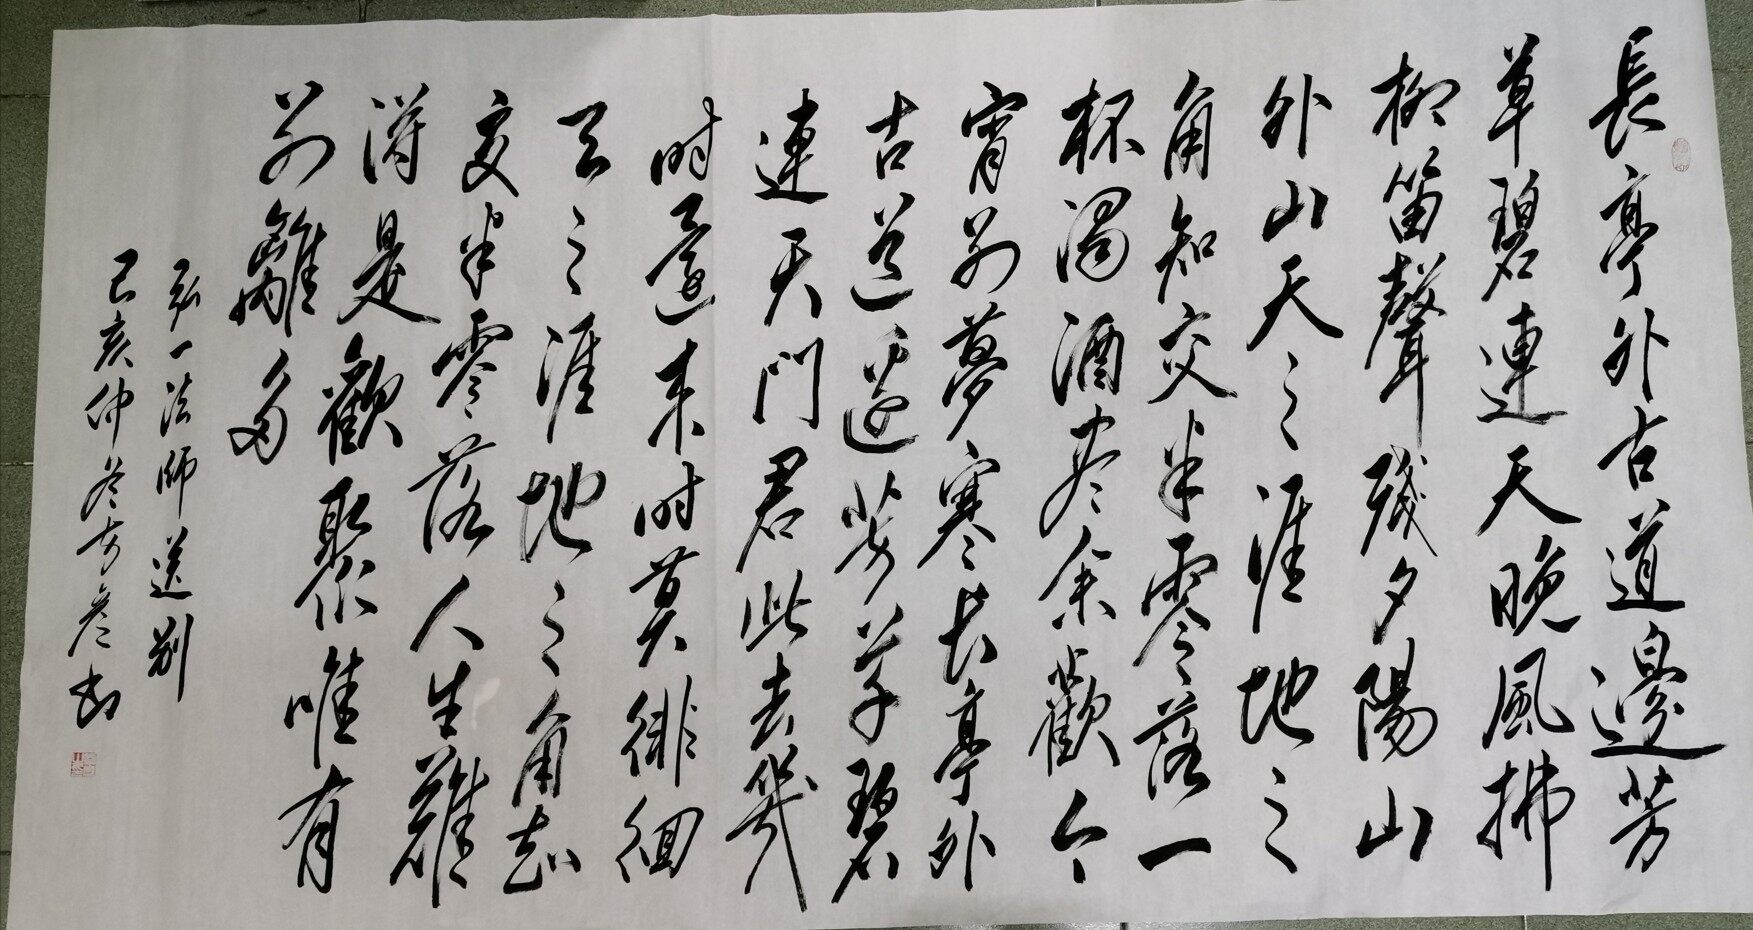 長亭外古道邊芳
草碧連天晚風拂
柳笛聲殘夕陽山
外山天之涯地之
角知交半零落一
杯濁酒尽余歡今
宵别夢寒长亭外
古道邊芳草碧
連天門君此去幾
时還来时莫徘徊
天之涯地之角知
交半零落人生難
得是歡聚唯有
别離多
弘一法師送别
己亥仲冬书